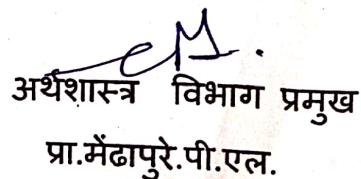 अर्थशास्त्र विभाग प्रमुख
प्रा.मेंढापुरे.पी.एल.